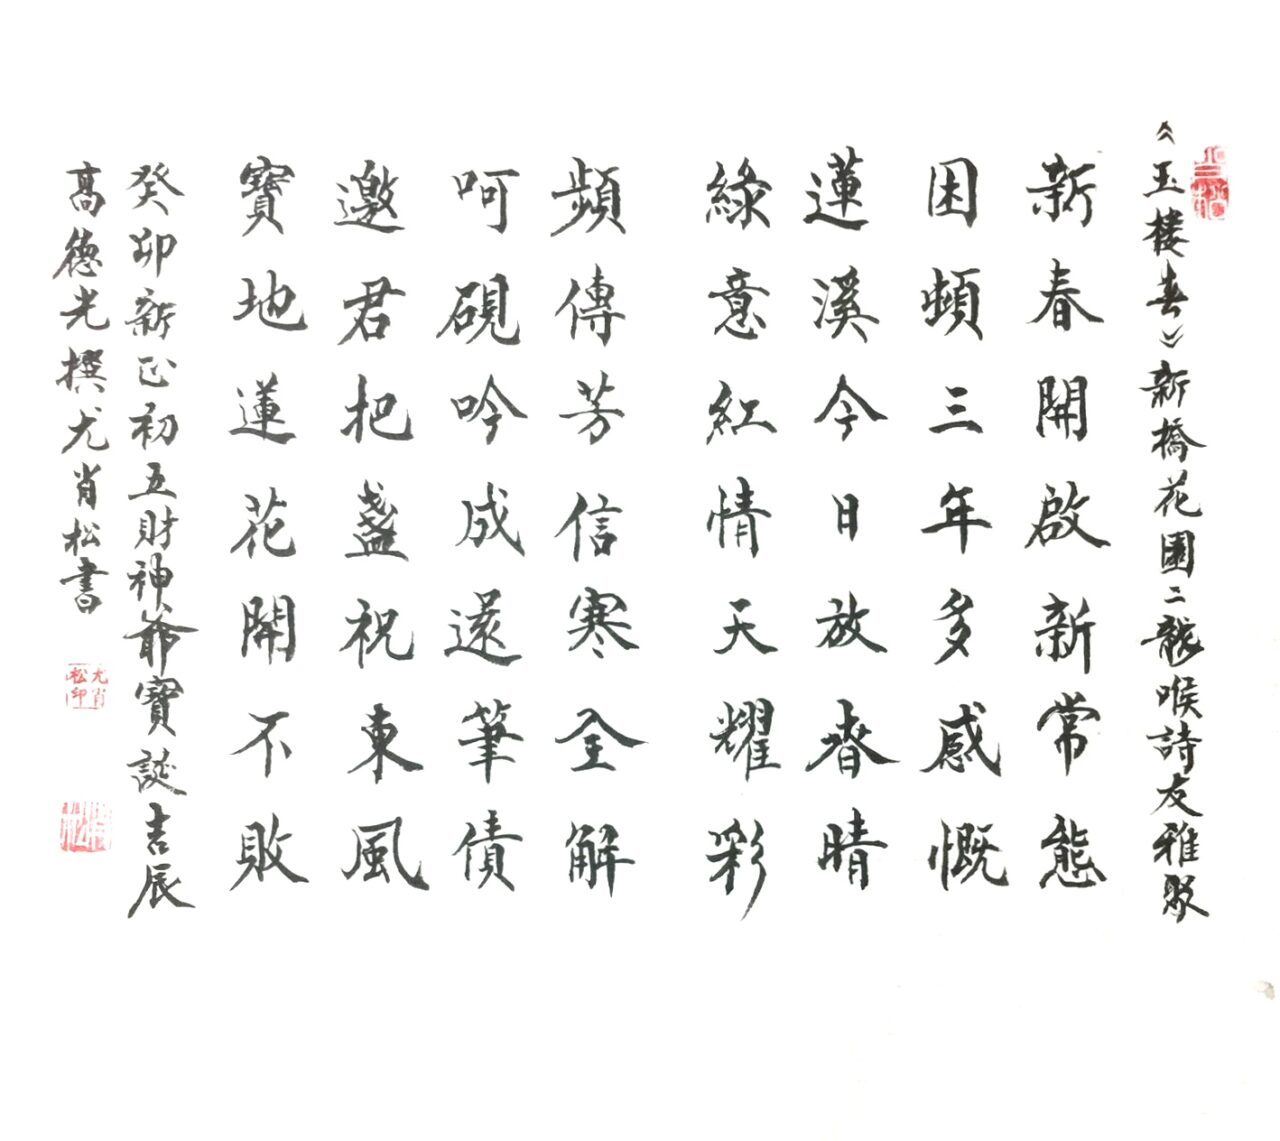 《玉樓春》新橋花園二龍喉詩友雅聚
新春開啟新常態
困頓三年多感慨
蓮溪今日放春晴
綠意紅情天耀彩
頻傳芳信寒全解
呵硯吟成還筆債
邀君把盞祝東風
寶地蓮花開不敗
癸卯新正初五財神爺寶誕吉辰
高德光撰尤肖松書
尤肖松印